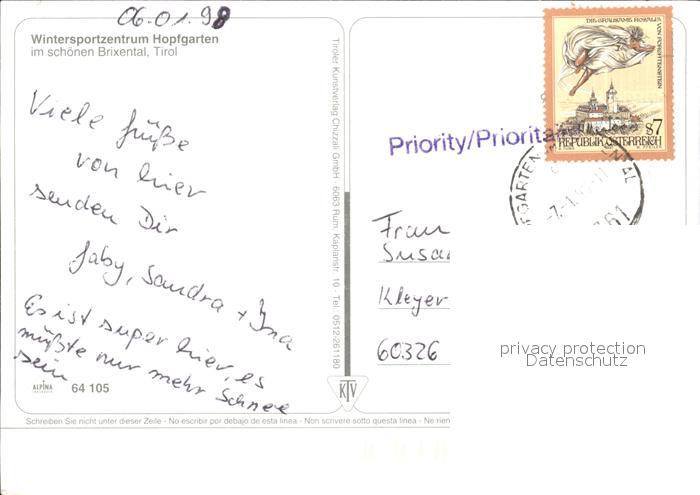 06.01.98
Wintersportzentrum Hopfgarten
im schönen Brixental, Tirol
Viele Grüße
von hier
senden Dir
Gaby, Sandra + Ina
Es ist super hier, es
müßte nur mehr Schnee
sein
ALPINA
64 105
Tiroler Kunstverlag Chizzali GmbH · 6063 Rum, Kaplanstr. 10 · Tel. 0512-261180
KTV
Schreiben Sie nicht unter dieser Zeile - No escribir por debajo de esta linea - Non scrivere sotto questa linea - Ne rien
DIE GRAUSAME ROSALIA
VON FORCHTENSTEIN
S7
REPUBLIK ÖSTERREICH
Priority/Prioritaire
Frau
Susa
Kleyer
60326
privacy protection
Datenschutz